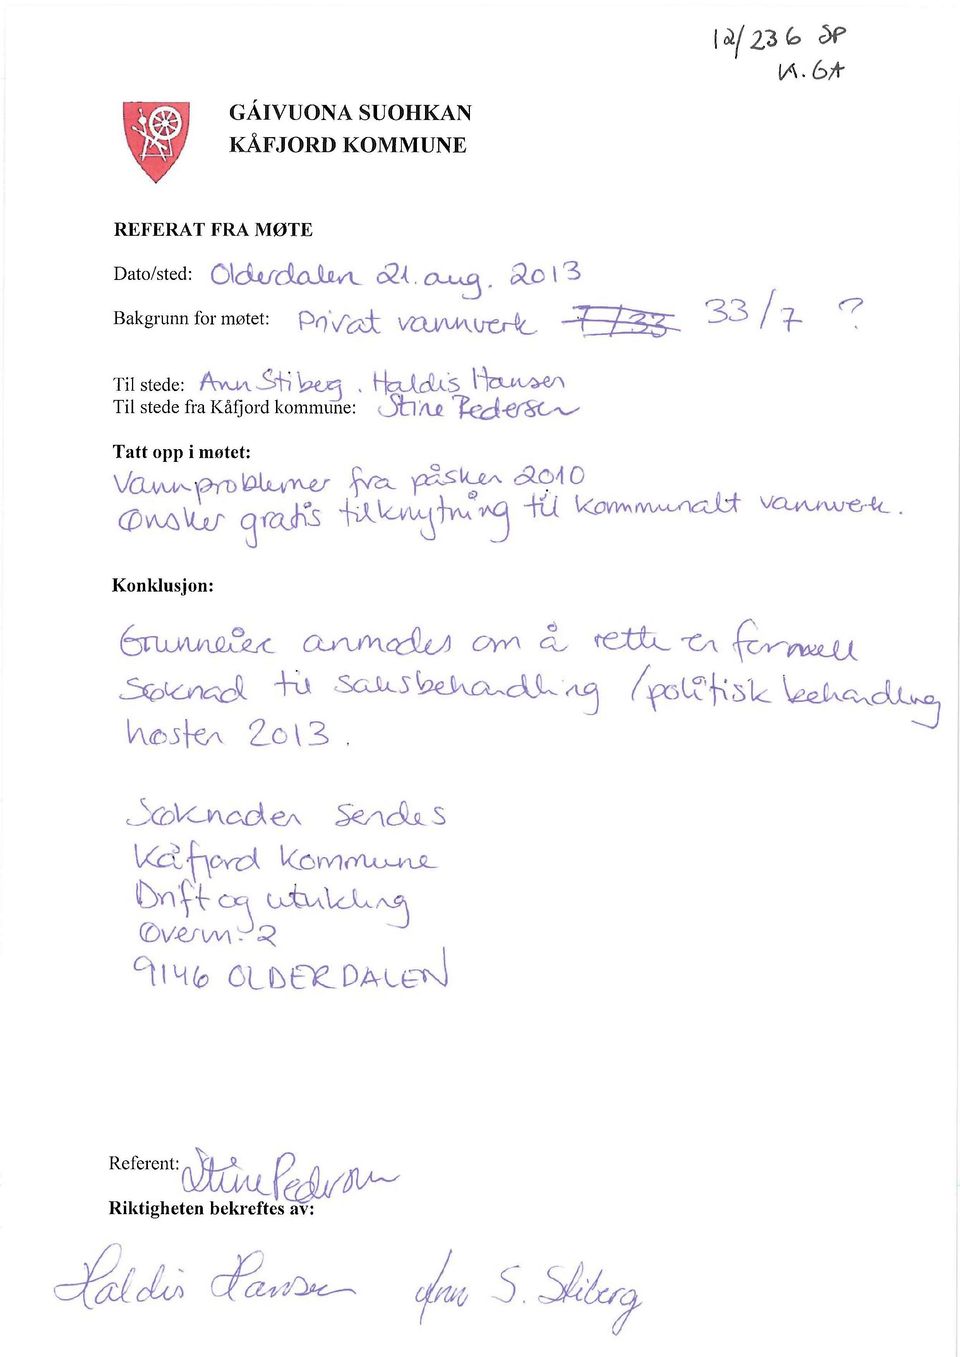 12/236 SP
K1.6A
GÁIVUONA SUOHKAN
KÅFJORD KOMMUNE
REFERAT FRA MØTE
Dato/sted: Olderdalen 21. aug. 2013
Bakgrunn for møtet: Privat vannverk 7/33 33/7 ?
Til stede: Ann Stiberg . Haldis Hansen
Til stede fra Kåfjord kommune: Stine Pedersen
Tatt opp i møtet:
Vannproblemer fra påsken 2010
Ønsker gratis tilknytning til kommunalt vannverk.
Konklusjon:
Grunneier anmodes om å rette en formell
søknad til saksbehandling /politisk behandling
høsten 2013.
Søknaden sendes
Kåfjord kommune
Drift og utvikling
Øverv. 2
9146 OLDERDALEN
Referent: Stine Pedersen
Riktigheten bekreftes av:
Haldis Hansen Ann S. Stiberg